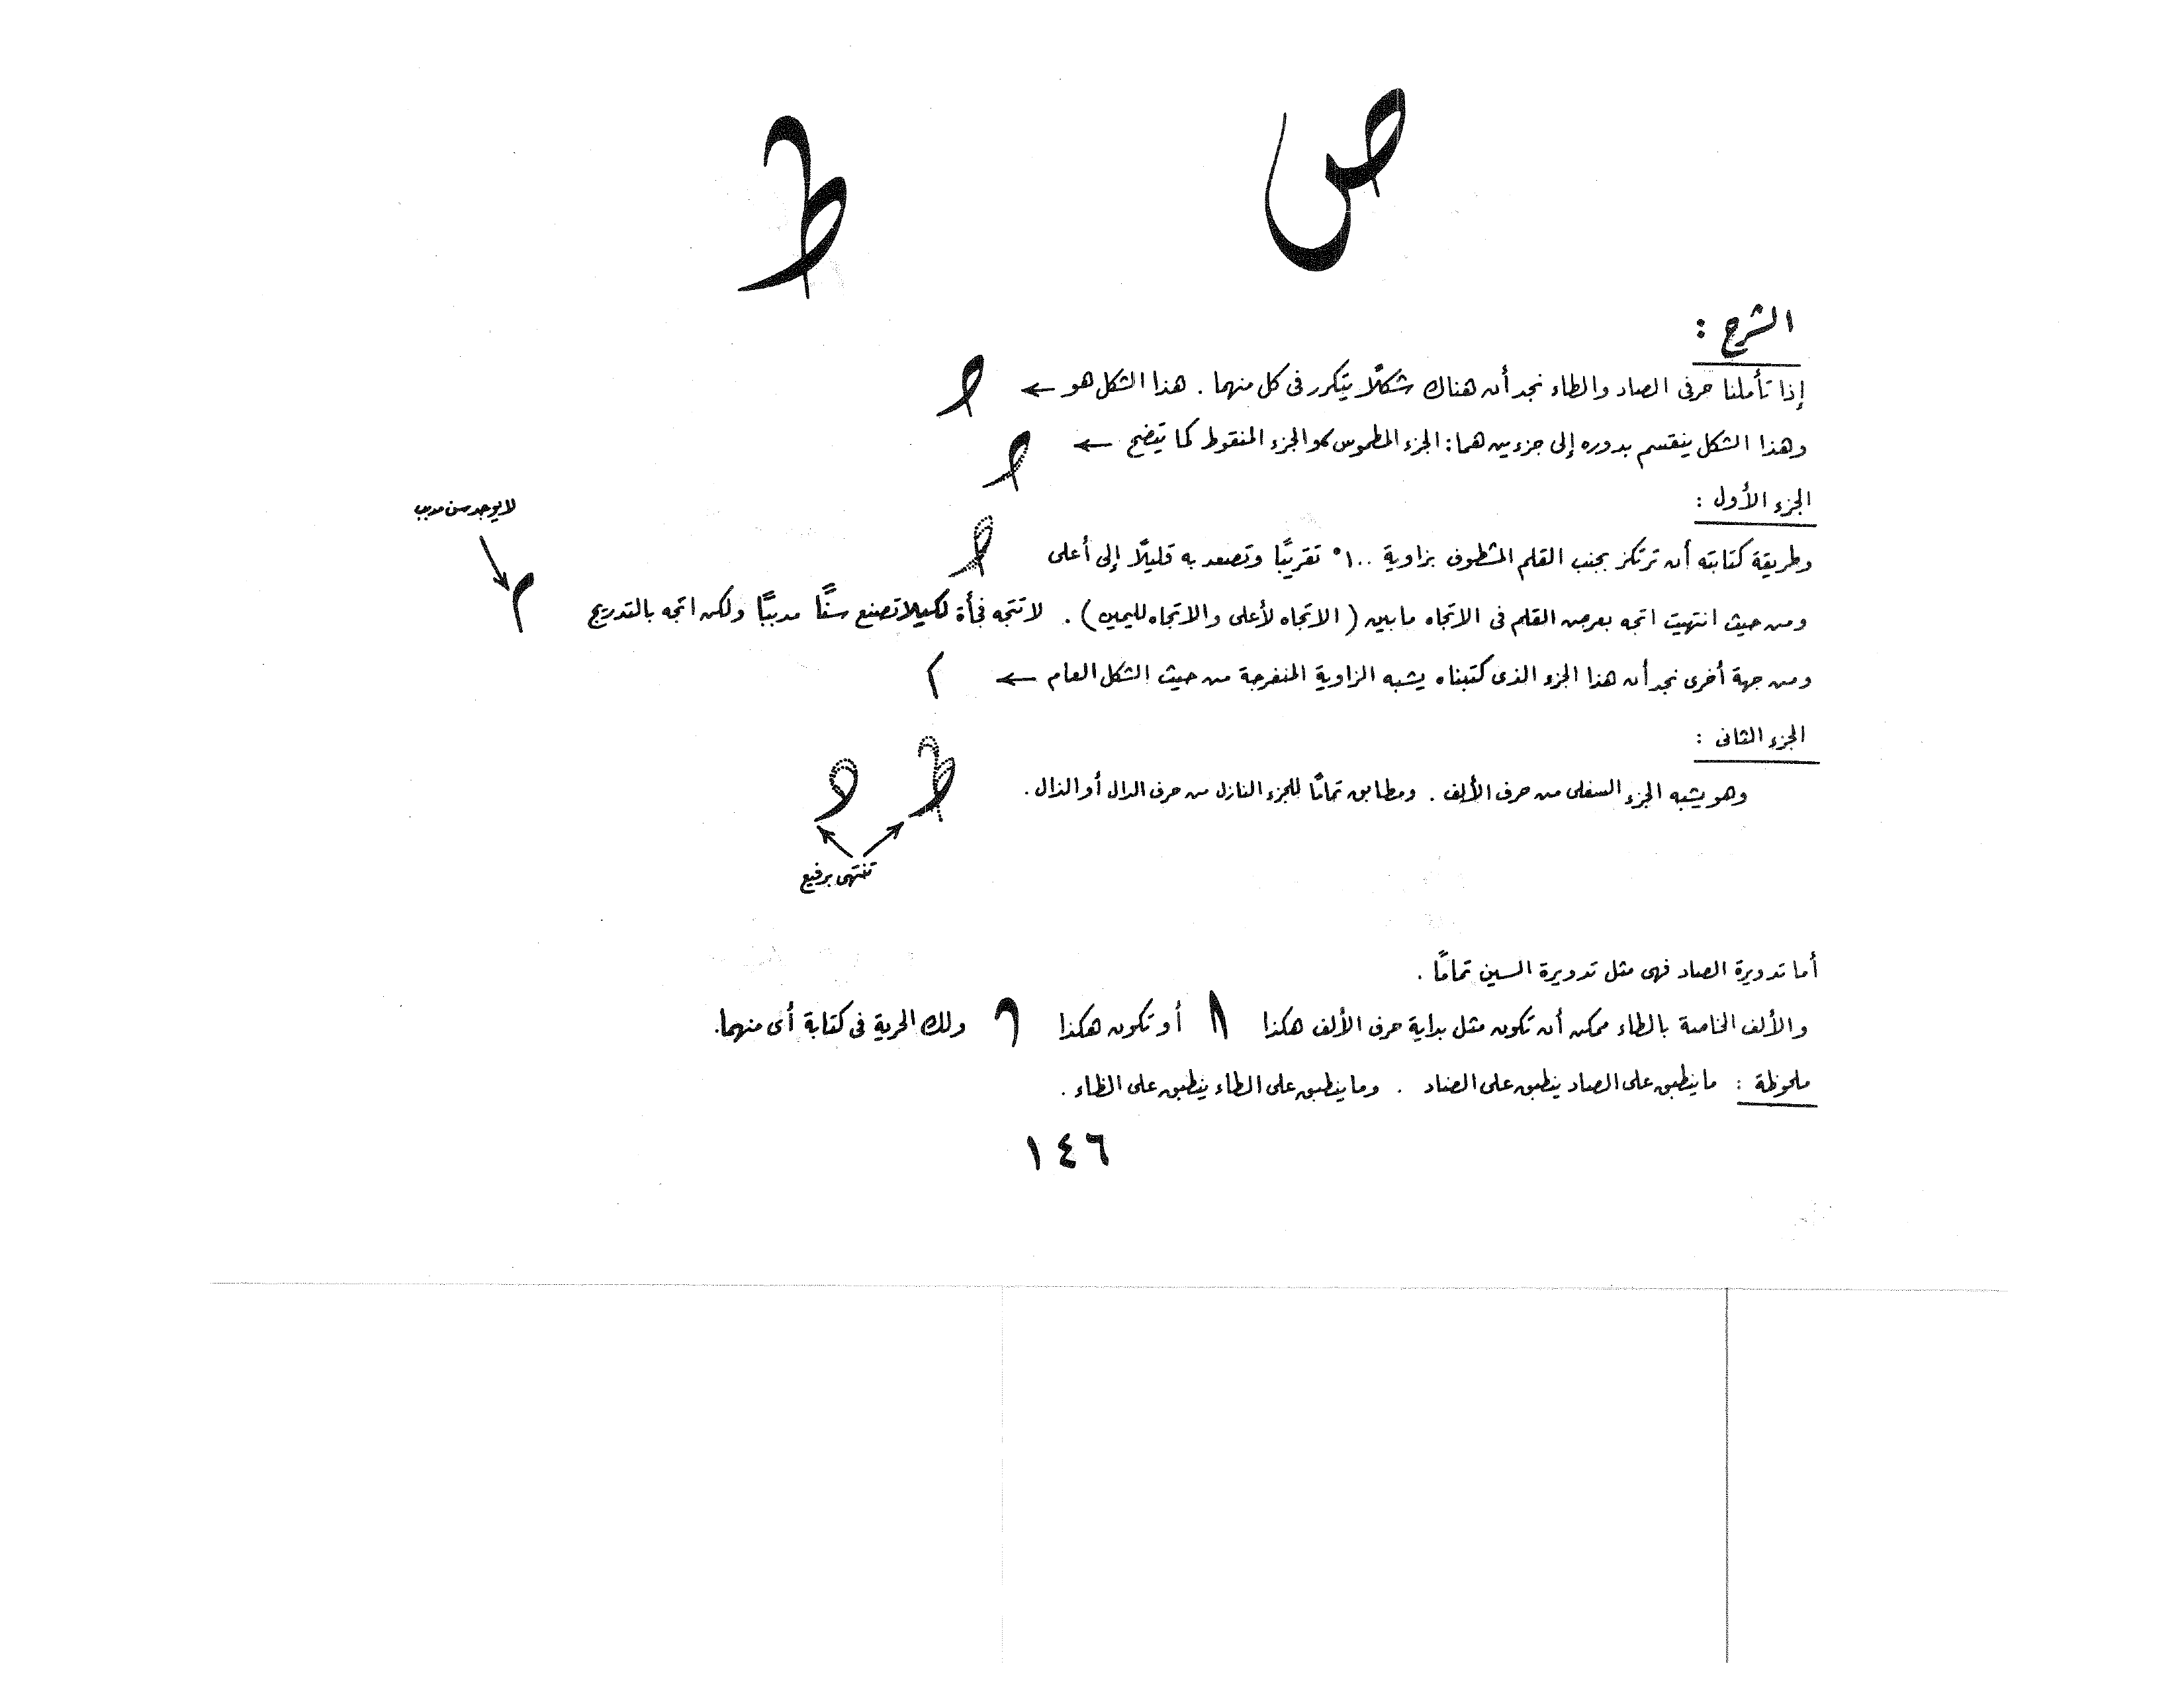 ص ط
الشرح :
إذا تأملنا حرفى الصاد والطاء نجد أن هناك شكلاً يتكرر فى كل منهما . هذا الشكل هو ←
وهذا الشكل ينقسم بدوره إلى جزءين هما : الجزء المطموس والجزء المنقوط كما يتضح ←
الجزء الأول :
وطريقة كتابته أن ترتكز بجنب القلم المشطوف بزاوية ١٠٠° تقريبًا وتصعد به قليلاً إلى أعلى
لا يوجد سن مدبب
ومن حيث انتهيت اتجه بعرض القلم فى الاتجاه ما بين ( الاتجاه لأعلى والاتجاه لليمين ) . لا تتجه فجأة لكيلا تصنع سنًّا مدببًا ولكن اتجه بالتدريج
ومن جهة أخرى نجد أن هذا الجزء الذى كتبناه يشبه الزاوية المنفرجة من حيث الشكل العام ←
الجزء الثانى :
وهو يشبه الجزء السفلى من حرف الألف . ومطابق تمامًا للجزء النازل من حرف الدال أو الذال .
تنتهى برفيع
أما تدويرة الصاد فهى مثل تدويرة السين تمامًا .
والألف الخاصة بالطاء ممكن أن تكون مثل بداية حرف الألف هكذا أو تكون هكذا ولك الحرية فى كتابة أى منهما .
ملحوظة : ما ينطبق على الصاد ينطبق على الضاد . وما ينطبق على الطاء ينطبق على الظاء .
١٤٦